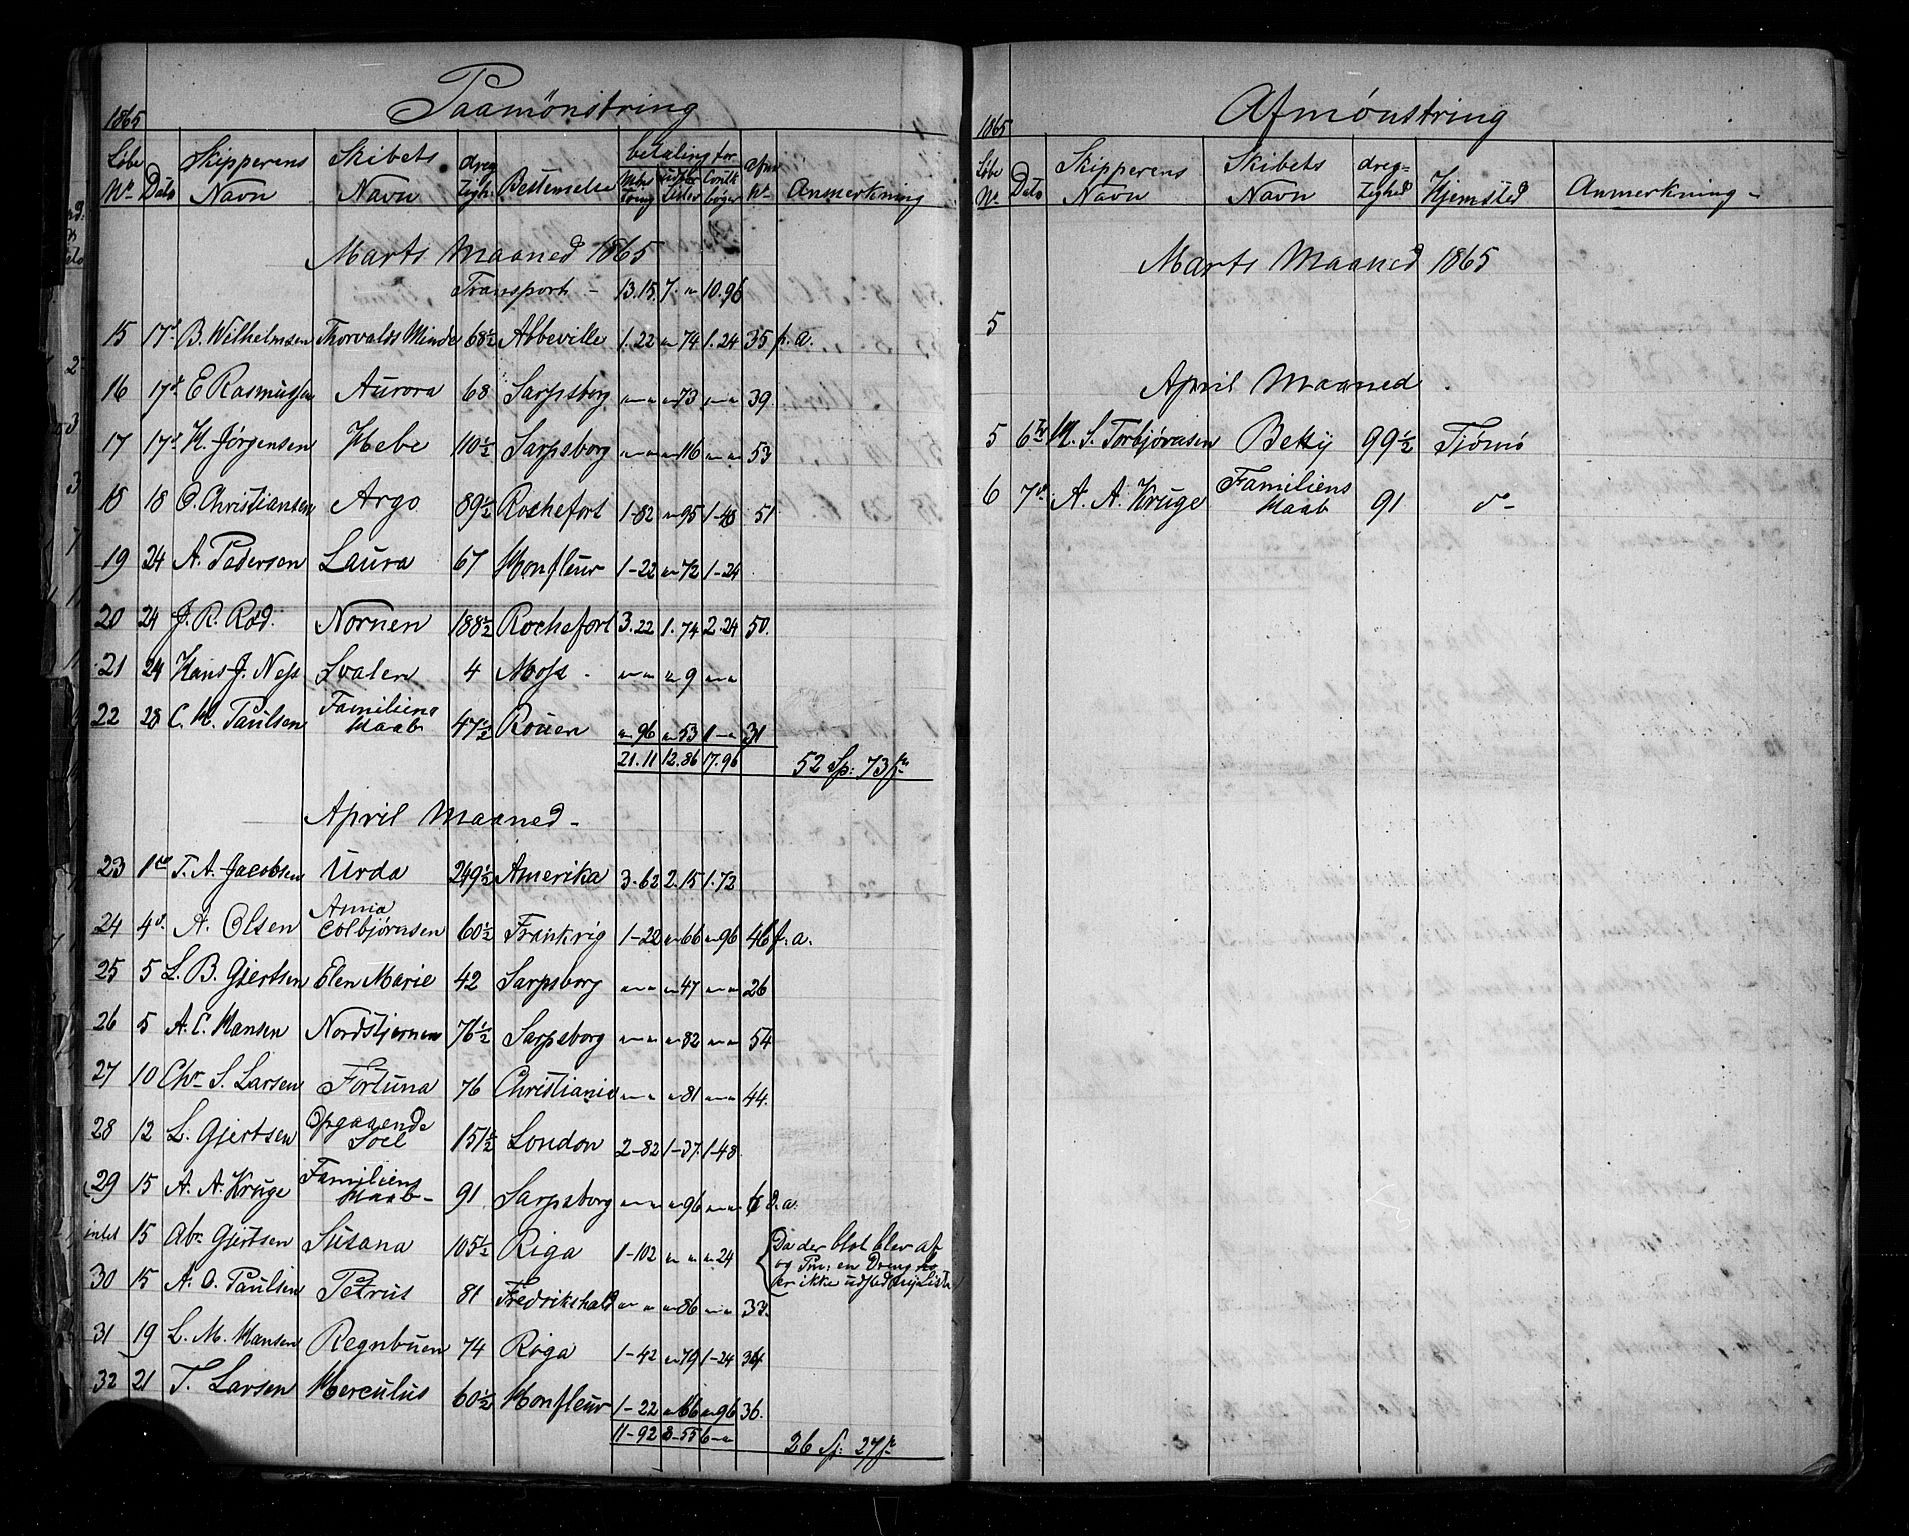 1865 Paamönstring
Löbe Skipperens Skibets dreg betaling for Afm
No Dato Navn Navn tigh: Bestemelse Møn string Conll bøger No Anmerkning
Marts Maaned 1865
Transport - 13.15 7. " 10.96
15 17d B. Wilhelmsen Thorvalds Minde 68½ Abbeville 1.22 " 74 1.24 35 f. a.
16 17d E Rasmussen Aurora 68 Sarpsborg " - " " 73 " - " 39
17 17d H. Jørgensen Hebe 110½ Sarpsborg " - " " - 116 " - " 53
18 18 O. Christiansen Argo 89½ Rochefort 1-82 " 95 1-48 51
19 24 A. Pedersen Laura 67 Honfleur 1-22 " 72 1-24
20 24 J. R. Rød. Nornen 188½ Rochefort 3.22 1.74 2.24 50.
21 24 Hans J. Ness Svalen 4 Moss - " - " " 9 " - "
22 28 C. H. Paulsen Familiens Haab 47½ Rouen " 96 " 53 1 - " 31
21.11 12.86 17.96 52 Sp: 73 s
April Maaned -
23 1ste T. A. Jacobsen Urda 249½ Amerika 3-62 2.15 1.72
24 4d. A. Olsen Anna Colbjørnsen 60½ Frankrig 1-22 " 66 " 96 46 f. a.
25 5 L. B. Gjertsen Elen Marie 42 Sarpsborg " - " " 47 " - " 26
26 5 A. C. Hansen Nordstjernen 76½ Sarpsborg " - " " 82 " - " 54
27 10 Chr. S. Larsen Fortuna 76 Christiania " - " " 81 " - " 44.
28 12 L. Gjertsen Opgaaende Soel 151½ London 2-82 1-37 1-48
29 15 A. A. Kruge Familiens Haab - 91 Sarpsborg " - " " 96 " - " 6 d. a.
intet 15 Abr. Gjertsen Susana 105½ Riga 1-102 " " " 24 Da der blot blev af
og Pm: en Dreng
er ikke udsted nye Liste
30 15 A. O. Paulsen Petrus 81 Fredrikshald " - " " 86 " - " 33.
31 19 L. M. Hansen Regnbuen 74 Riga 1-42 " 79 1-24 34
32 21 T. Larsen Herculus 60½ Honfleur 1-22 " 66 " 96 36.
11-92 8-55 6 - " 26 Sp: 27 s
1865 Afmønstring
Löbe Skipperens Skibets dreg=
No Dato Navn Navn tighed Hjemsted Anmerkning -
Marts Maaned 1865
5
April Maaned .
5 6te M. S. Torbjørnsen Beky 99½ Tjømø
6 7d. A. A. Kruge Familiens Haab 91 do -